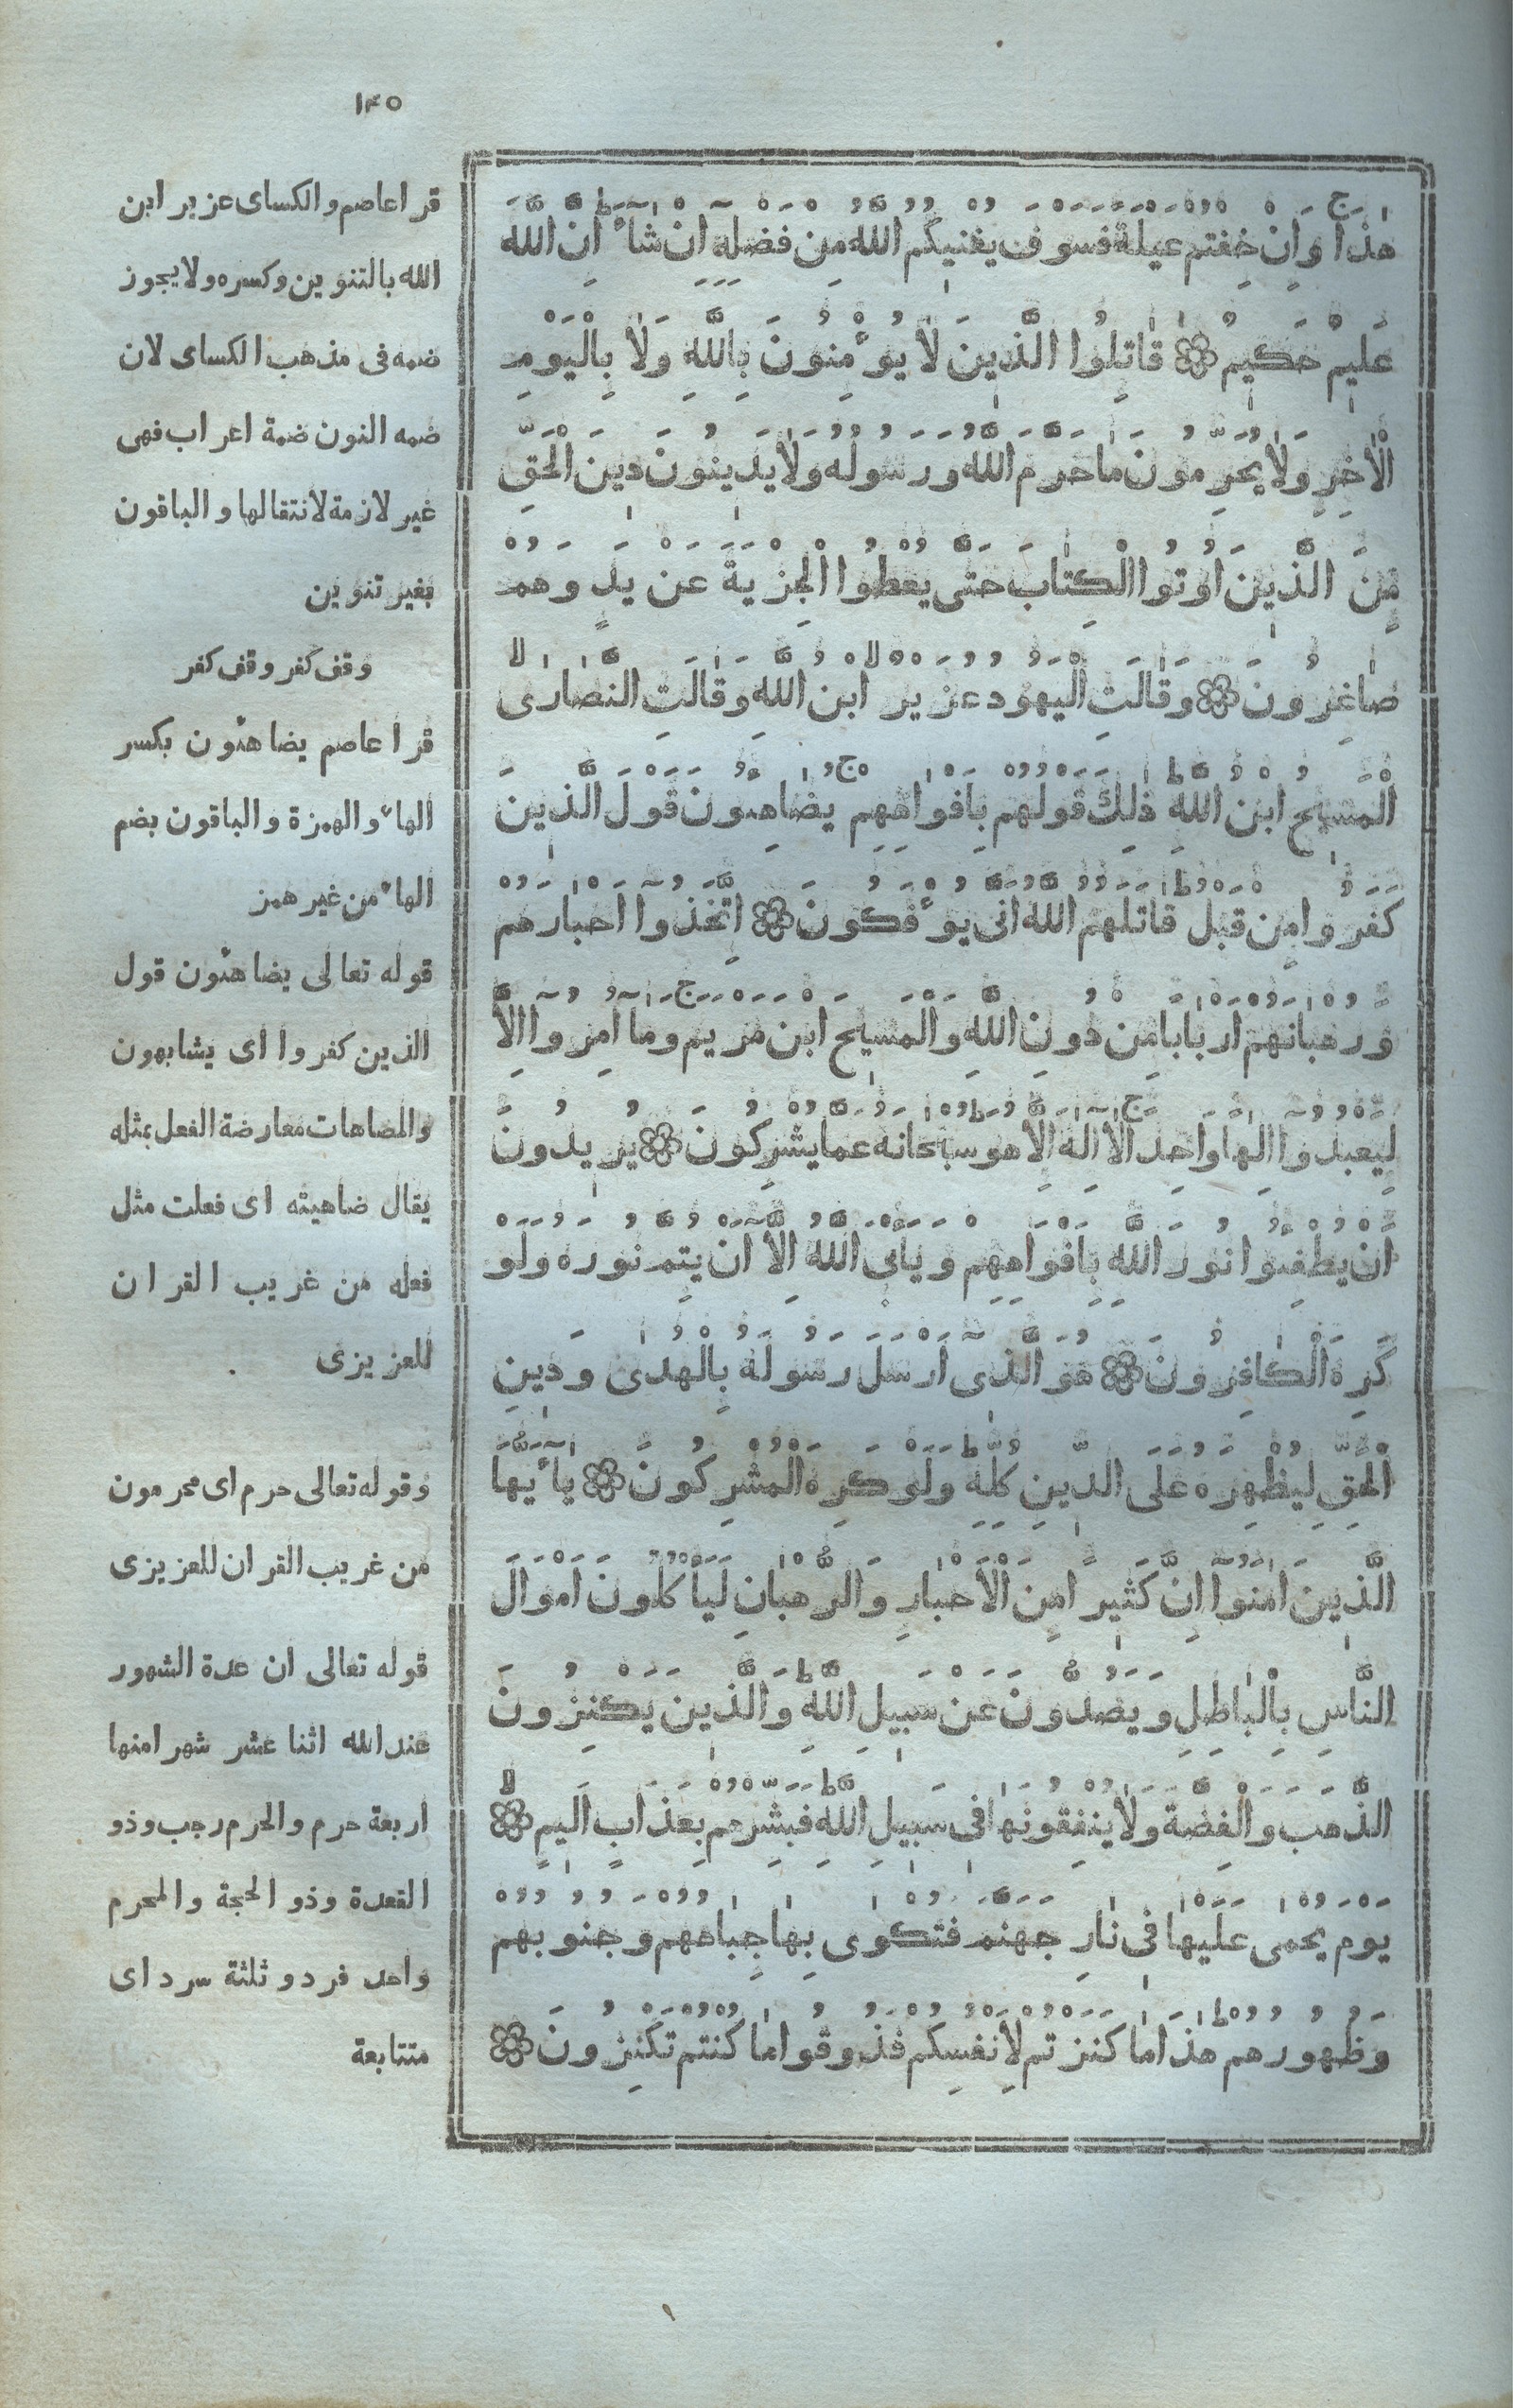 ١٤٥
هٰذَا وَاِنْ خِفْتُمْ عَيْلَةً فَسَوْفَ يُغْنِيكُمُ اللّٰهُ مِنْ فَضْلِهٖٓ اِنْ شَآءَ اِنَّ اللّٰهَ
عَلِيمٌ حَكِيمٌ قَاتِلُوا الَّذِينَ لَا يُؤْمِنُونَ بِاللّٰهِ وَلَا بِالْيَوْمِ
الْاٰخِرِ وَلَا يُحَرِّمُونَ مَا حَرَّمَ اللّٰهُ وَرَسُولُهُ وَلَا يَدِينُونَ دِينَ الْحَقِّ
مِنَ الَّذِينَ اُوتُوا الْكِتَابَ حَتّٰى يُعْطُوا الْجِزْيَةَ عَنْ يَدٍ وَهُمْ
صَاغِرُونَ وَقَالَتِ الْيَهُودُ عُزَيْرٌ ابْنُ اللّٰهِ وَقَالَتِ النَّصَارٰى
الْمَسِيحُ ابْنُ اللّٰهِ ذٰلِكَ قَوْلُهُمْ بِاَفْوَاهِهِمْ يُضَاهِئُونَ قَوْلَ الَّذِينَ
كَفَرُوا مِنْ قَبْلُ قَاتَلَهُمُ اللّٰهُ اَنّٰى يُؤْفَكُونَ اِتَّخَذُوٓا اَحْبَارَهُمْ
وَرُهْبَانَهُمْ اَرْبَابًا مِنْ دُونِ اللّٰهِ وَالْمَسِيحَ ابْنَ مَرْيَمَ وَمَآ اُمِرُوٓا اِلَّا
لِيَعْبُدُوٓا اِلٰهًا وَاحِدًا لَآ اِلٰهَ اِلَّا هُوَ سُبْحَانَهُ عَمَّا يُشْرِكُونَ يُرِيدُونَ
اَنْ يُطْفِئُوا نُورَ اللّٰهِ بِاَفْوَاهِهِمْ وَيَأْبَى اللّٰهُ اِلَّآ اَنْ يُتِمَّ نُورَهُ وَلَوْ
كَرِهَ الْكَافِرُونَ هُوَ الَّذِىٓ اَرْسَلَ رَسُولَهُ بِالْهُدٰى وَدِينِ
الْحَقِّ لِيُظْهِرَهُ عَلَى الدِّينِ كُلِّهِ وَلَوْ كَرِهَ الْمُشْرِكُونَ يَآ اَيُّهَا
الَّذِينَ اٰمَنُوٓا اِنَّ كَثِيرًا مِنَ الْاَحْبَارِ وَالرُّهْبَانِ لَيَأْكُلُونَ اَمْوَالَ
النَّاسِ بِالْبَاطِلِ وَيَصُدُّونَ عَنْ سَبِيلِ اللّٰهِ وَالَّذِينَ يَكْنِزُونَ
الذَّهَبَ وَالْفِضَّةَ وَلَا يُنْفِقُونَهَا فِى سَبِيلِ اللّٰهِ فَبَشِّرْهُمْ بِعَذَابٍ اَلِيمٍ
يَوْمَ يُحْمٰى عَلَيْهَا فِى نَارِ جَهَنَّمَ فَتُكْوٰى بِهَا جِبَاهُهُمْ وَجُنُوبُهُمْ
وَظُهُورُهُمْ هٰذَا مَا كَنَزْتُمْ لِاَنْفُسِكُمْ فَذُوقُوا مَا كُنْتُمْ تَكْنِزُونَ
قرا عاصم والكساى عزير ابن
الله بالتنوين وكسره ولا يجوز
ضمه فى مذهب الكساى لان
ضمه النون ضمة اعراب فهى
غير لازمة لانتقالها والباقون
بغير تنوين
وقف كفر وقف كفر
قرا عاصم يضاهئون بكسر
الهاء والهمزة والباقون بضم
الهاء من غير همز
قوله تعالى يضاهئون قول
الذين كفروا اى يشابهون
والمضاهات معارضة الفعل بمثله
يقال ضاهيته اى فعلت مثل
فعله من غريب القران
للعزيزى
وقوله تعالى حرم اى محرمون
من غريب القران للعزيزى
قوله تعالى ان عدة الشهور
عند الله اثنا عشر شهرا منها
اربعة حرم والحرم رجب وذو
القعدة وذو الحجة والمحرم
واحد فرد و ثلثة سرد اى
متتابعة